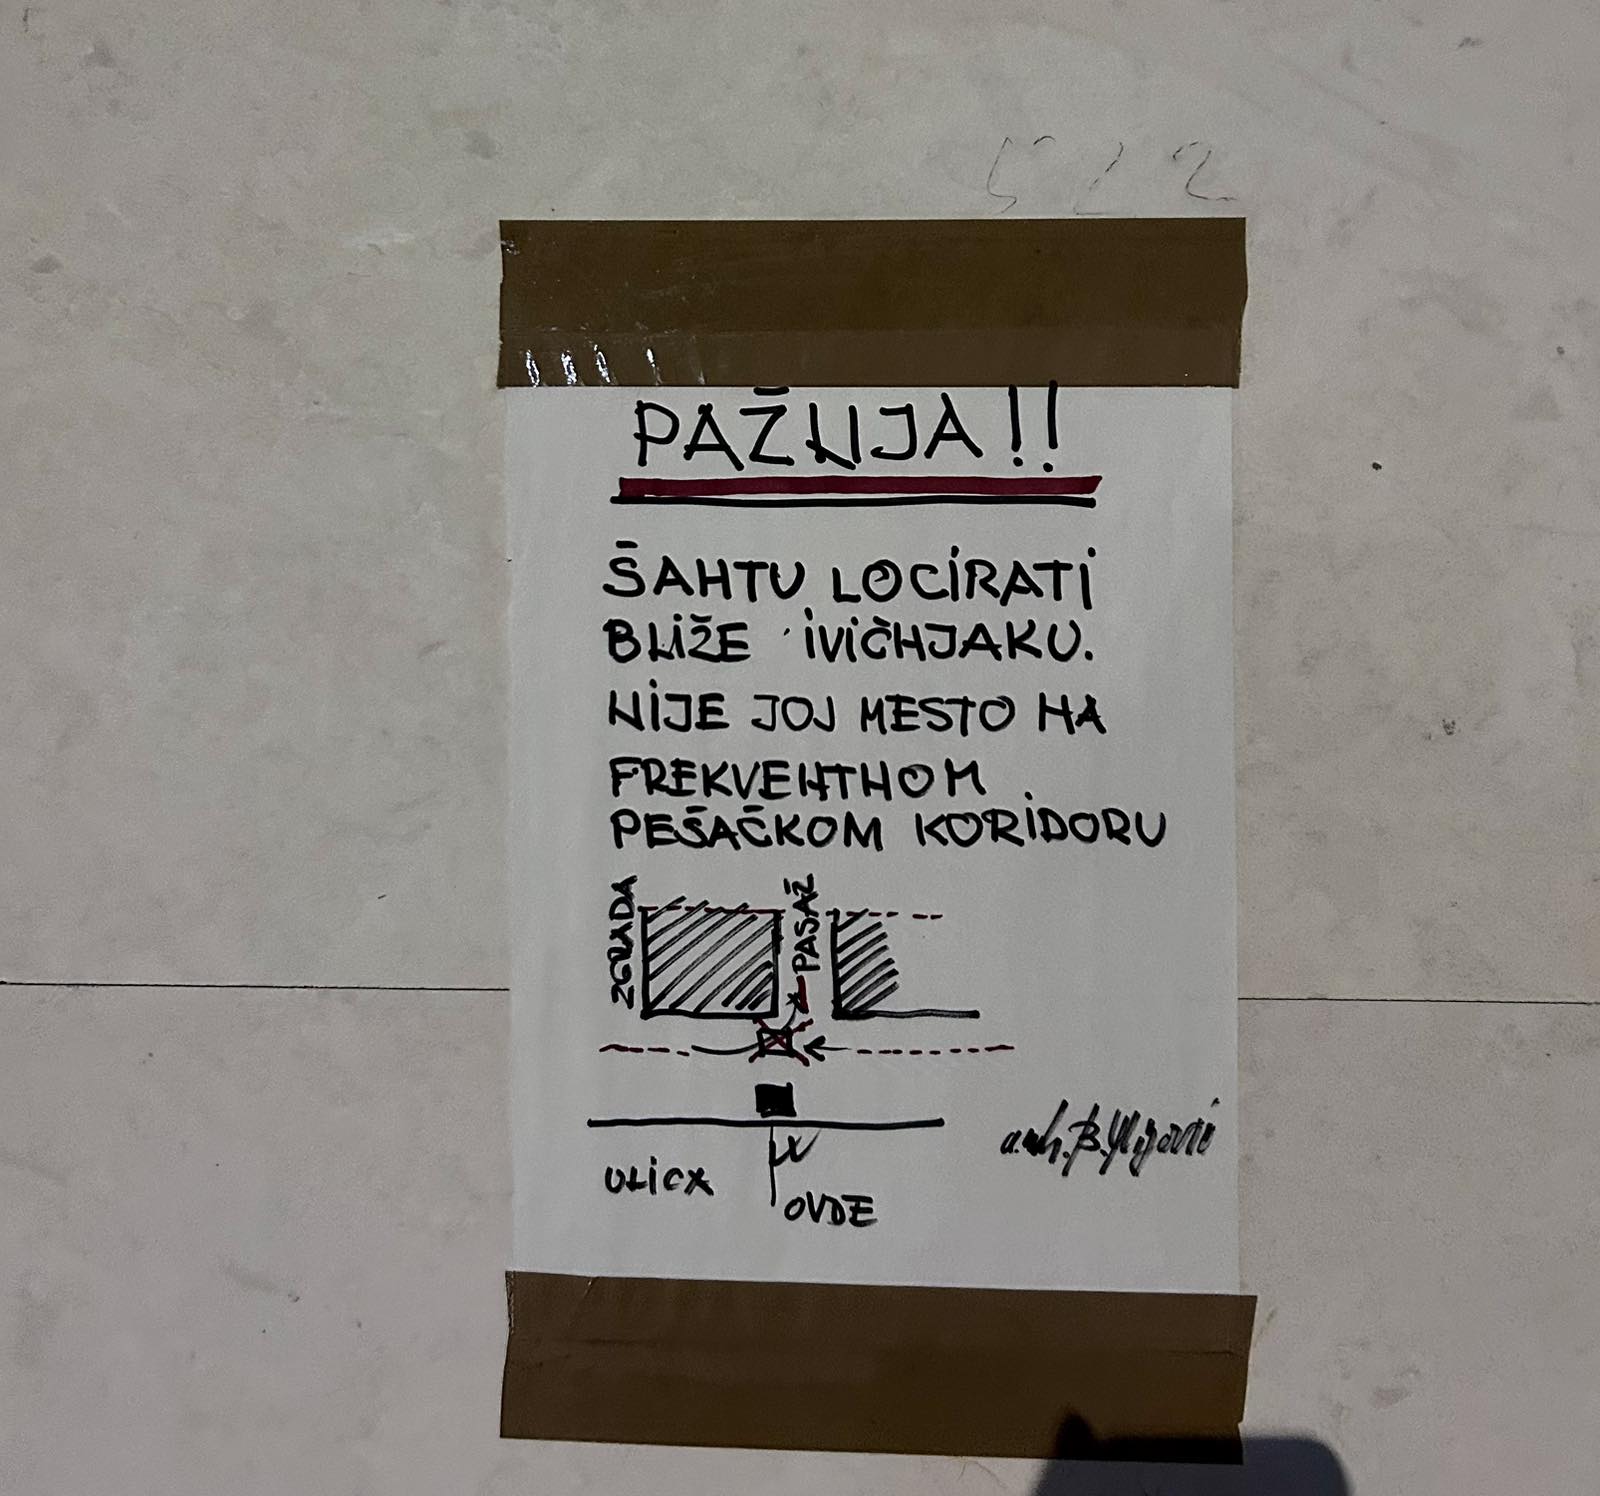 522
PAŽNJA!!
ŠAHTU LOCIRATI
BLIŽE IVIČNJAKU.
NIJE JOJ MESTO NA
FREKVENTNOM
PEŠAČKOM KORIDORU
ZGRADA
PASAŽ
ULICA
OVDE
arh. B.